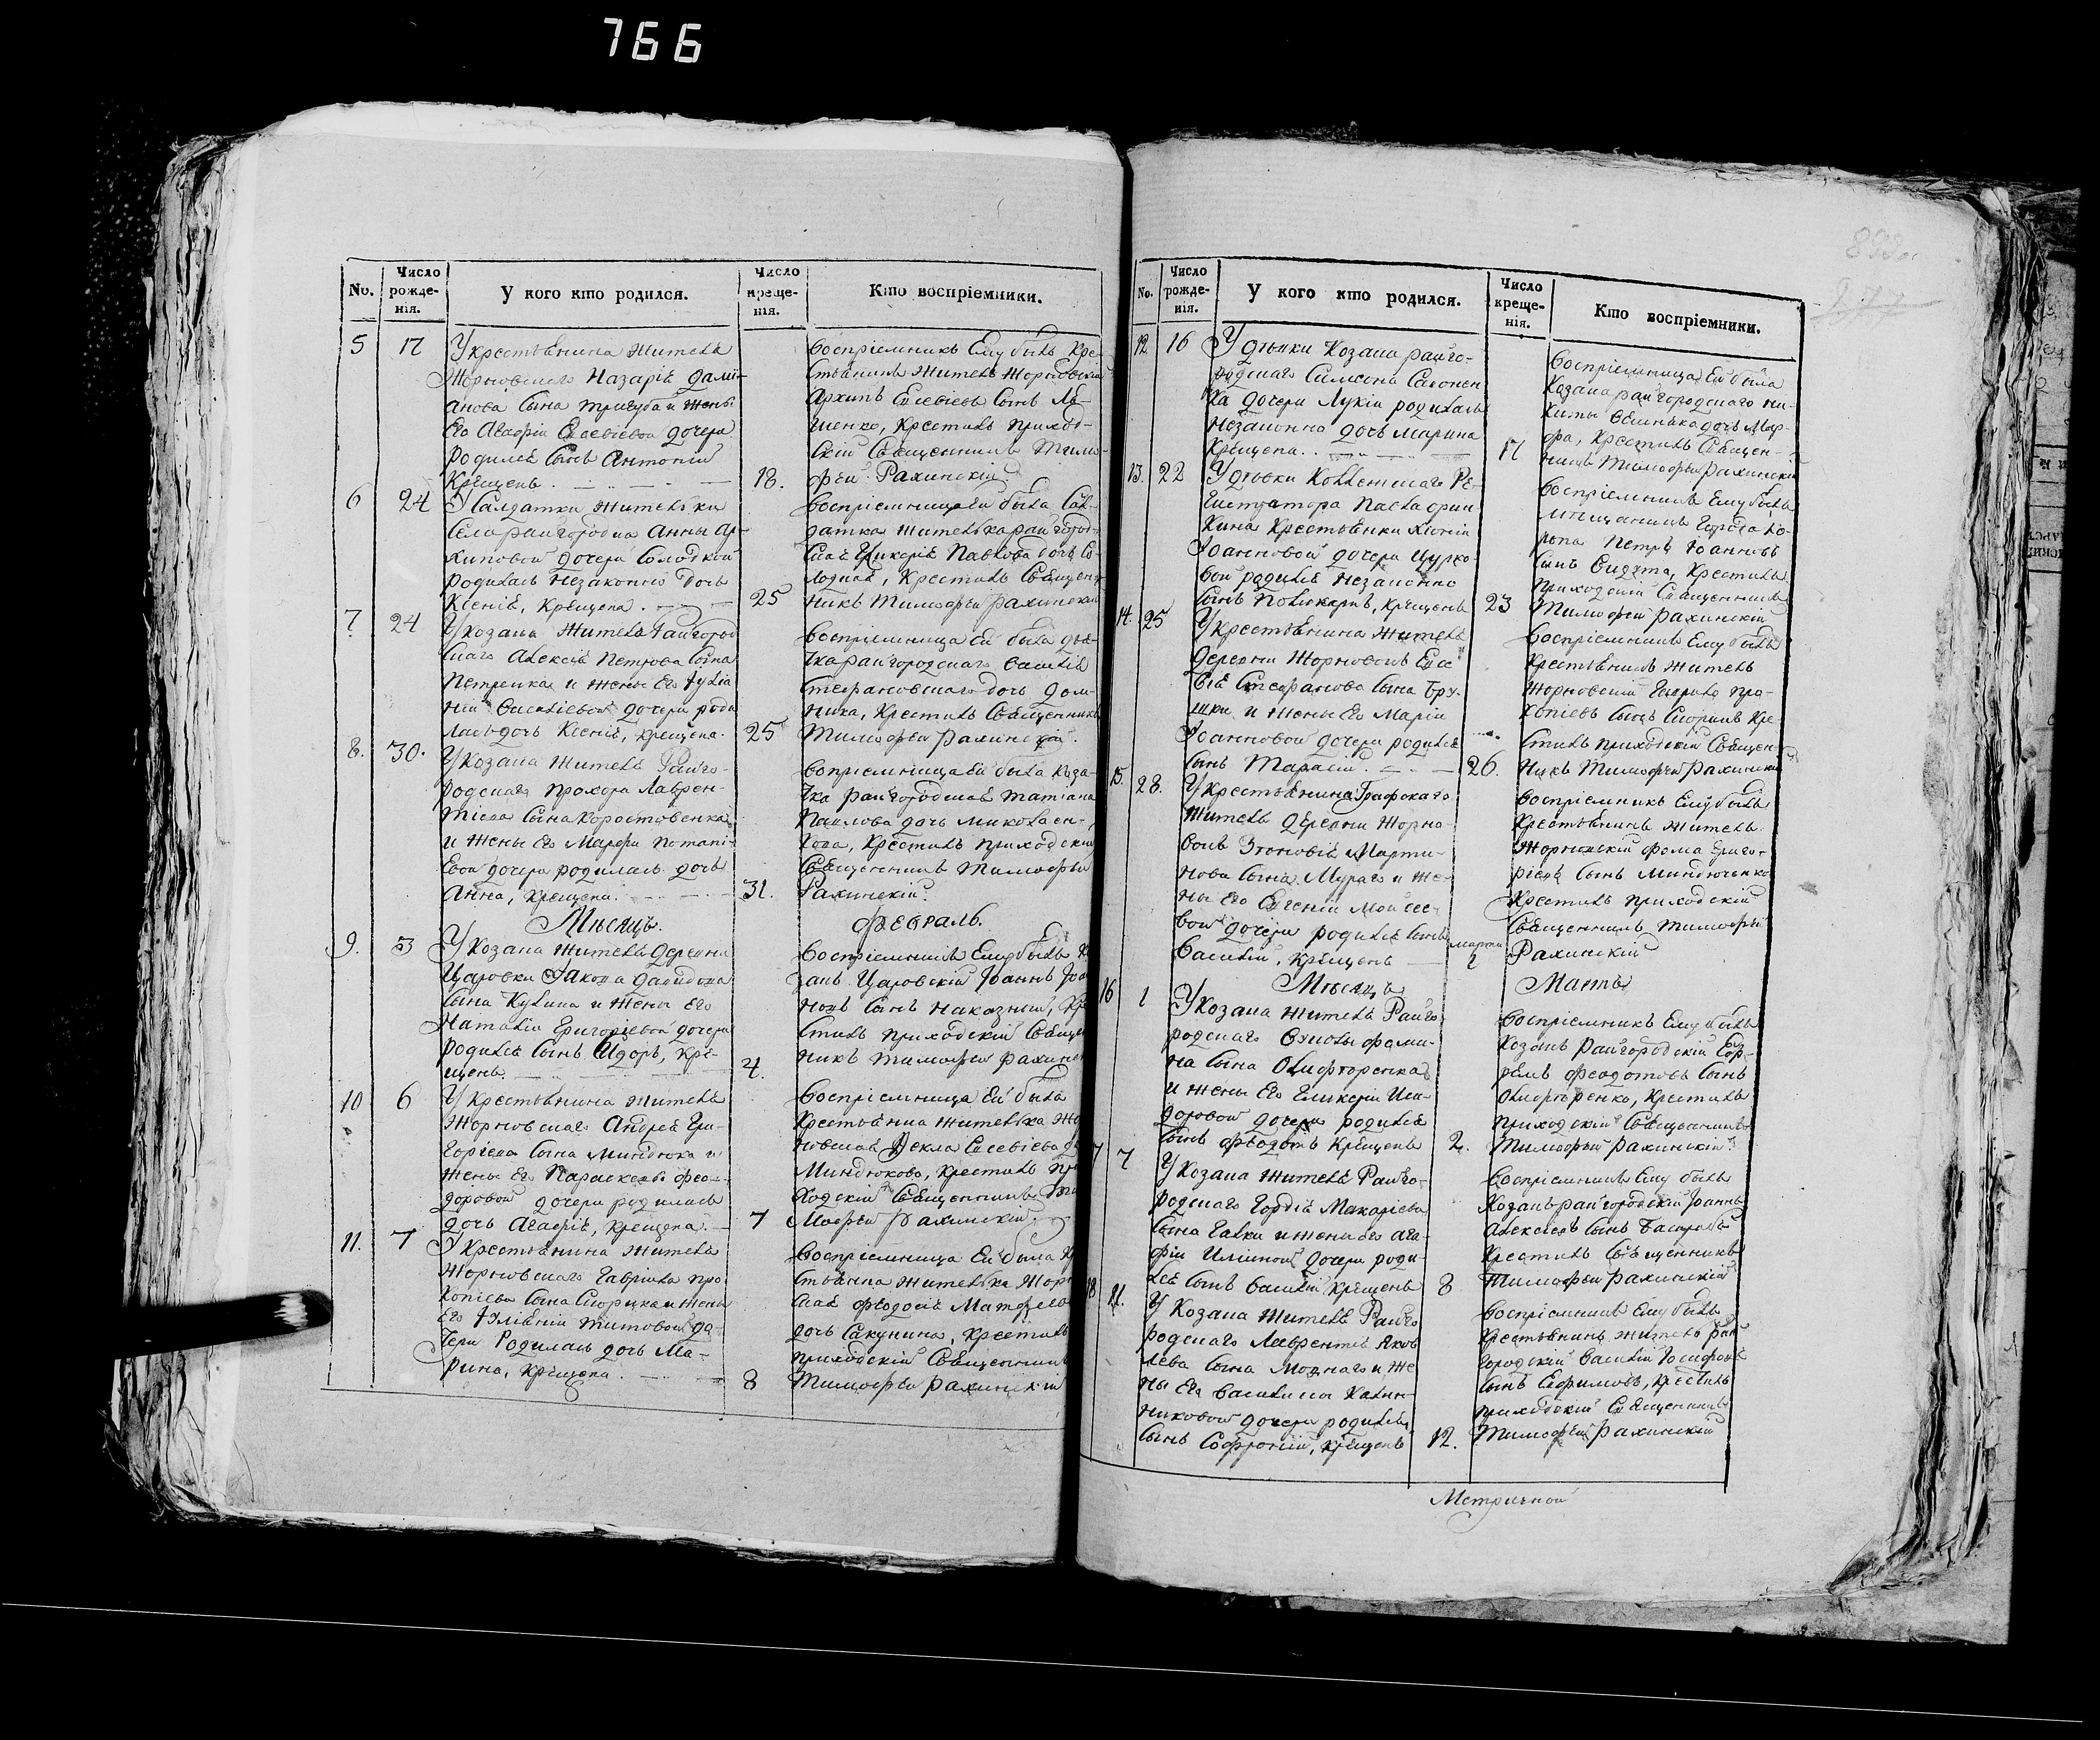 766
No.
Число рожде-нія.
У кого кто родился.
Число креще-нія.
Кто воспріемники.
5 17 У крестьянина жителя
Жорновскаго Назарія Дами-
анова сына Тригуба и жены
Его Агафіи Евсевіевой дочери
родился сынъ Антоній
Крещенъ 18.
воспріемникъ Ему былъ Кре-
стьянинъ житель Жорновскій
Архипъ Евсевіевъ сынъ
Крестилъ приход-
скій Священникъ Тимо-
фей Рахинскій
6 24 У Салдатки жительки
Села Райгородка Анны Ар-
хиповой дочери Солодкой
родилась незаконно дочь
Ксенія, крещена 25
воспріемница ей была Сал-
датка жителька райгород-
ская Гликерія Павлова дочь Со-
лодкая, Крестилъ Священ-
никъ Тимофей Рахинскій
7 24 У козака жителя Райгород
скаго Алексія Петрова сына
Петренка и жены Его Іулiа
ніи Василіевой дочери роди
лась дочь Ксенія, крещена. 25
воспріемница ей была дья-
чка райгородскаго Василія
Стефановскаго дочь Дом-
ника, Крестилъ Священникъ
Тимофей Рахинскій.
8. 30. У козака жителя Райго-
родскаго Прохора Лаврен-
тіева сына Коростовенка
и жены Его Марфы Потапі-
евой дочери родилась дочь
Анна, крещена. 31.
вопріемница ей была коза-
чка райгородская Татіана
Павлова дочь Миколаен-
кова, Крестилъ приходскій
Священникъ Тимофей
Рахинскій.
Мѣсяцъ. Февраль.
9. 3 У козака жителя деревни
Царовки Іакова Давидова
сына Кулика и жены Его
Наталіи Григоріевой дочери
родился сынъ Исидоръ, кре-
щенъ. 4.
воспріемникъ Ему былъ
Царовскій Іоаннъ
новъ сынъ Наказный,
стилъ приходскій
никъ Тимофей
10 6 У крестьянина жителя
Жорновскаго Андрея Гри-
горіева сына Миндюка и
жены Его Параскевы Фео-
доровой дочери родилась
дочь Агафія, крещена. 7
воспріемница Ей была
Крестьянка жителька
Фекла Евсевіева
Миндюкова, крестилъ
ходскій Священникъ
мофей Рахинскій
11. 7 У крестьянина жителя
Жорновскаго Гавріила Про-
копіева сына Скорика и жены
Его Іуліаніи Титовой до-
чери Родилась дочь Ма-
рина, крещена 8
воспріемница Ей была
стьянка жителька
ская Феодосія
дочь Сакунина, крестилъ
приходскій Священникъ
Тимофей Рахинскій
No.
Число рожде-нія.
У кого кто родился.
Число креще-нія.
Кто воспріемники.
12 16 У дѣвки козака райго-
родскаго Самсона
ка дочери Лукіи родилась
незаконно дочь Марина
Крещена 17
воспріемница Ей была
козака райгородскаго Ни-
киты дочь Мар-
фа, крестилъ Священ-
никъ Тимофей Рахинскій
13. 22 У дѣвки Коллежскаго Ре-
гистратора
кина крестьянки Ксеніи
Іоанновой дочери Цурко-
вой родился незаконно
сынъ Поликарпъ, крещенъ 23
воспріемникъ Ему былъ
мѣщанинъ города Ко-
ропа Петръ Іоанновъ
сынъ крестилъ
приходскій Священникъ
Тимофей Рахинскій
14. 25 У крестьянина жителя
деревни Жорновокъ Евсе
вія Стефанова сына
и жены Его Маріи
Іоанновой дочери родился
сынъ Тарасій. 26.
воспріемникъ Ему былъ
крестьянинъ житель
Жорновскій Гавріилъ Про-
копіевъ сынъ Скорикъ Кре-
стилъ приходскій Священ-
никъ Тимофей Рахинскій
15. 28. У крестьянина Графскаго
жителя деревни Жорно-
вокъ Зѣновія Марти-
нова сына и же-
ны Его Евгеніи Мойсее-
вой дочери родился сынъ
Василій, крещенъ марта 2
воспріемникъ Ему былъ
крестьянинъ житель
Жорновскій Фома Григо-
ріевъ сынъ Миндюченко
Крестилъ приходскій
Священникъ Тимофей
Рахинскій
Мѣсяцъ Мартъ
16 1 У козака жителя Райго
родскаго Фоми-
на сына Олифиренка
и жены Его Гликеріи Иси-
доровой дочери родился
сынъ Феодотъ крещенъ 2.
воспріемникъ Ему былъ
козакъ Райгородскій Еф-
ремъ Феодотовъ сынъ
Олифиренко, Крестилъ
приходскій Священникъ
Тимофей Рахинскій
7 7 У козака жителя Райго-
родскаго Гордія Макаріева
сына Галки и жены его Ага-
фіи Иліиной дочери роди
лся сынъ Василій крещенъ 8
воспріемникъ Ему былъ
козакъ райгородскій Іоаннъ
Алексіевъ сынъ
Крестилъ Священникъ
Тимофей Рахинскій
18 11. У козака жителя Райго
родскаго Лаврентія Яков
лева сына и же
ны Его Василисы Калин-
никовой дочери родился
сынъ Софроній, крещенъ 12.
воспріемникъ Ему былъ
крестьянинъ житель рай
городскій Василій Іосифовъ
сынъ Ефимовъ, крестилъ
приходскій Священникъ
Тимофей Рахинскій
Метричной